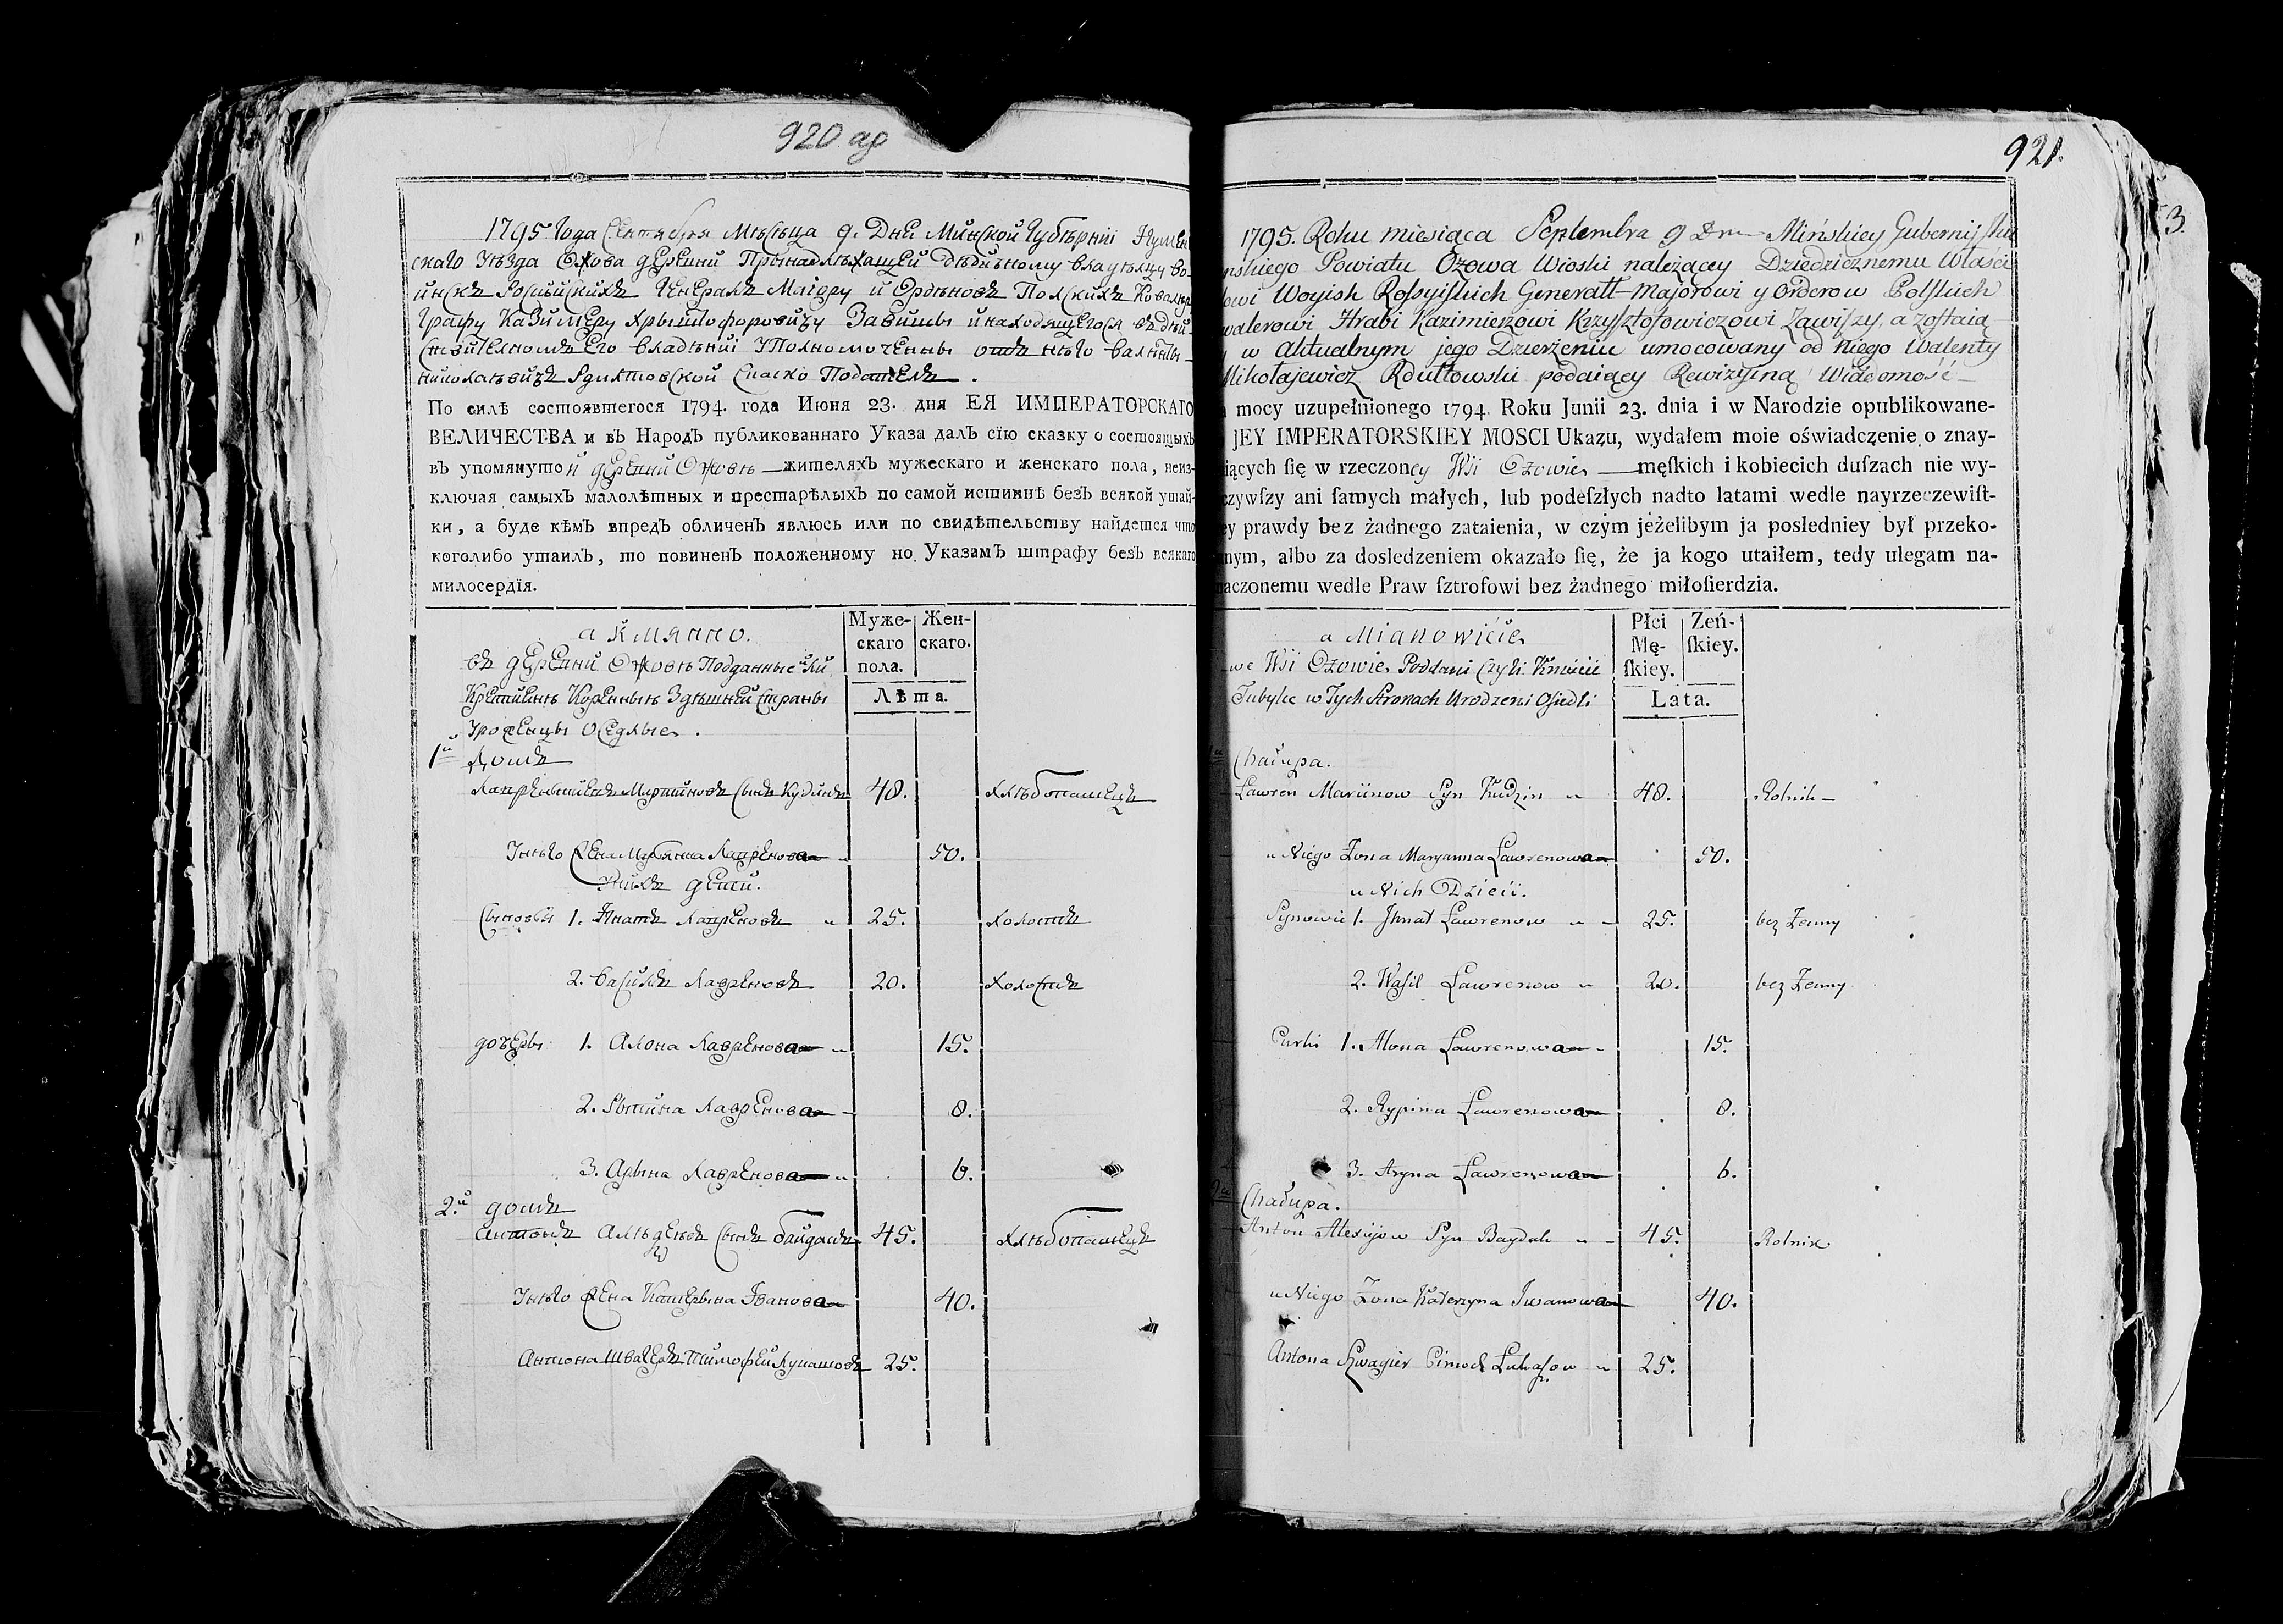 920 ар
1795 Года Сентября Мѣсѣца 9. Дня Минской Губѣрніи Игумен
скаго Уѣзда Ожова деревни Прынадлѣжащей дѣдичному владѣльцу во-
йнскъ Росыйскихъ Генералъ Маіору и Ордѣновъ Польскихъ Кавалеру
Графу Казимеру Хрыштофоровичу Завишы и находящегося въ дѣй-
ствительномъ Его владѣніи Уполномоченны отъ нѣго Валѣнты
Николаѣвичъ Рдултовской Сказко Податель.
По силѣ состоявшегося 1794. года Июня 23. дня ЕЯ ИМПЕРАТОРСКАГО
ВЕЛИЧЕСТВА и въ Народъ публикованнаго Указа далъ сїю сказку о состоящыхъ
въ упомянутой деревни Ожовѣ жителяхъ мужескаго и женскаго пола, неиз-
ключая самыхъ малолѣтных и престарѣлыхъ по самой истиннѣ безъ всякой утай-
ки, а буде кѣмъ впредъ обличенъ явлюсь или по свидѣтельству найдется что
коголибо утаилъ, то повиненъ положенному по Указамъ штрафу безъ всякаго
милосердїя.
а Имянно. Муже- Жен-
скаго скаго.
въ деревни Ожовѣ Подданные пола.
Лѣта.
Уроженцы Оседлые.
1й домъ
Лавренъ Мартиновъ Сынъ Кудинъ 48. хлѣбопашецъ
У нѣго жена Марьяна Лавренова 50.
У нихъ дети.
Сыновья 1. Игнатъ Лавреновъ 25. холостъ
2. Василъ Лавреновъ 20. холостъ
дочеры 1. Алона Лавренова 15.
2. Рыпина Лавренова 8.
3. Арына Лавренова 6.
2.й домъ
Антонъ Алѣѯеѣвъ Сынъ Байдакъ 45. хлѣбопашецъ
У нѣго жена Катерына Іванова 40.
Антона швагеръ Тимофей Лукашовъ 25.
921.
3.
1795. Roku miesiąca Septembra 9 Dnia Mińskiey Gubernij Ihu
mskiego Powiatu Ożowa Wioski należącey Dziedzicznemu Właści
lowi Woyisk Rossyiskich Generałł-Majorowi y Orderow Polskich
walerowi Hrabi Kazimierzowi Krzysztofowiczowi Zawiszy, a zostaią
y w aktualnym jego Dzierżeniu umocowany od niego Walenty
Mikołajewicz Rdułtowski podaiący Rewizyiną Wiadomość
mocy uzupełnionego 1794. Roku Junii 23. dnia i w Narodzie opublikowane-
JEY IMPERATORSKIEY MOSCI Ukazu, wydałem moie oświadczenie o znay-
iących ſię w rzeczoney Wsi Ożowie męſkich i kobiecich duſzach nie wy-
czywſzy ani ſamych małych, lub podeſzłych nadto latami wedle nayrzeczewiſt-
ey prawdy bez żadnego zataienia, w czym jeżelibym ja posledniey był przeko-
nym, albo za dosledzeniem okazało ſię, że ja kogo utaiłem, tedy ulegam na-
naczonemu wedle Praw ſztrofowi bez żadnego miłoſierdzia.
a Mianowicie Płci Zeń-
Mę- ſkiey.
we Wsi Ożowie Poddani Czyli Kmiecie ſkiey.
Tubylce w Tych Stronach Urodzeni Osiedli Lata.
Chałupa.
Ławren Marcinow Syn Kudzin 48. Rolnik
u Niego Żona Maryanna Ławrenowa 50.
u Nich Dzieci.
Synowie 1. Ihnat Ławrenow 25. bez Żenny
2. Wasil Ławrenow 20. bez Żenny
Curki 1. Alona Ławrenowa 15.
2. Rypina Ławrenowa 8.
3. Aryna Ławrenowa 6.
2a Chałupa.
Anton Alexiejow Syn Baydak 45. Rolnik
u Niego Żona Katerzyna Iwanowa 40.
Antona Szwagier Cimoch Łukaszow 25.